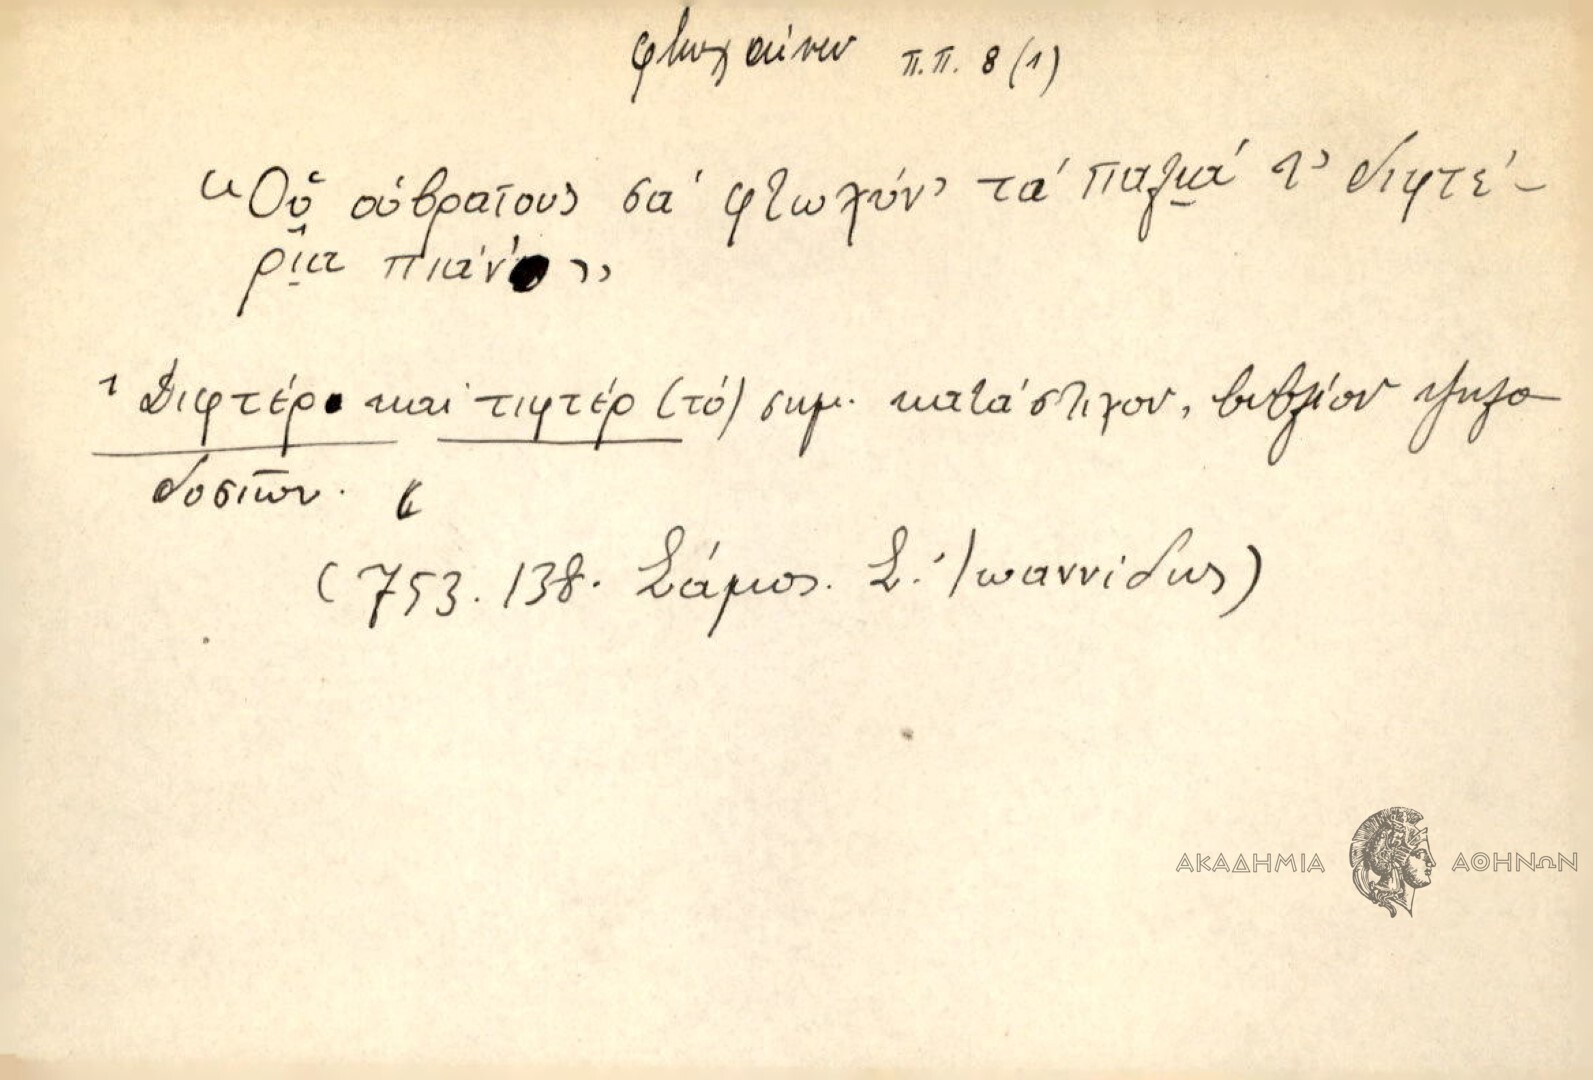 φτωχαίνω π.π. 8 (1)
«Οὑ ούβραίους σά φτωχύν' τά παλ̱ιά τ' διφτέ-
ρι̱α πιάν' »
1 Διφτέρ και τιφτέρ (τό) σημ. κατάστιχον, βιβλίον ψηλο
δοσιῶν.
(753.138. Σάμος. Σ. Ἰωαννίδης)
ΑΚΑΔΗΜΙΑ ΑΘΗΝΩΝ